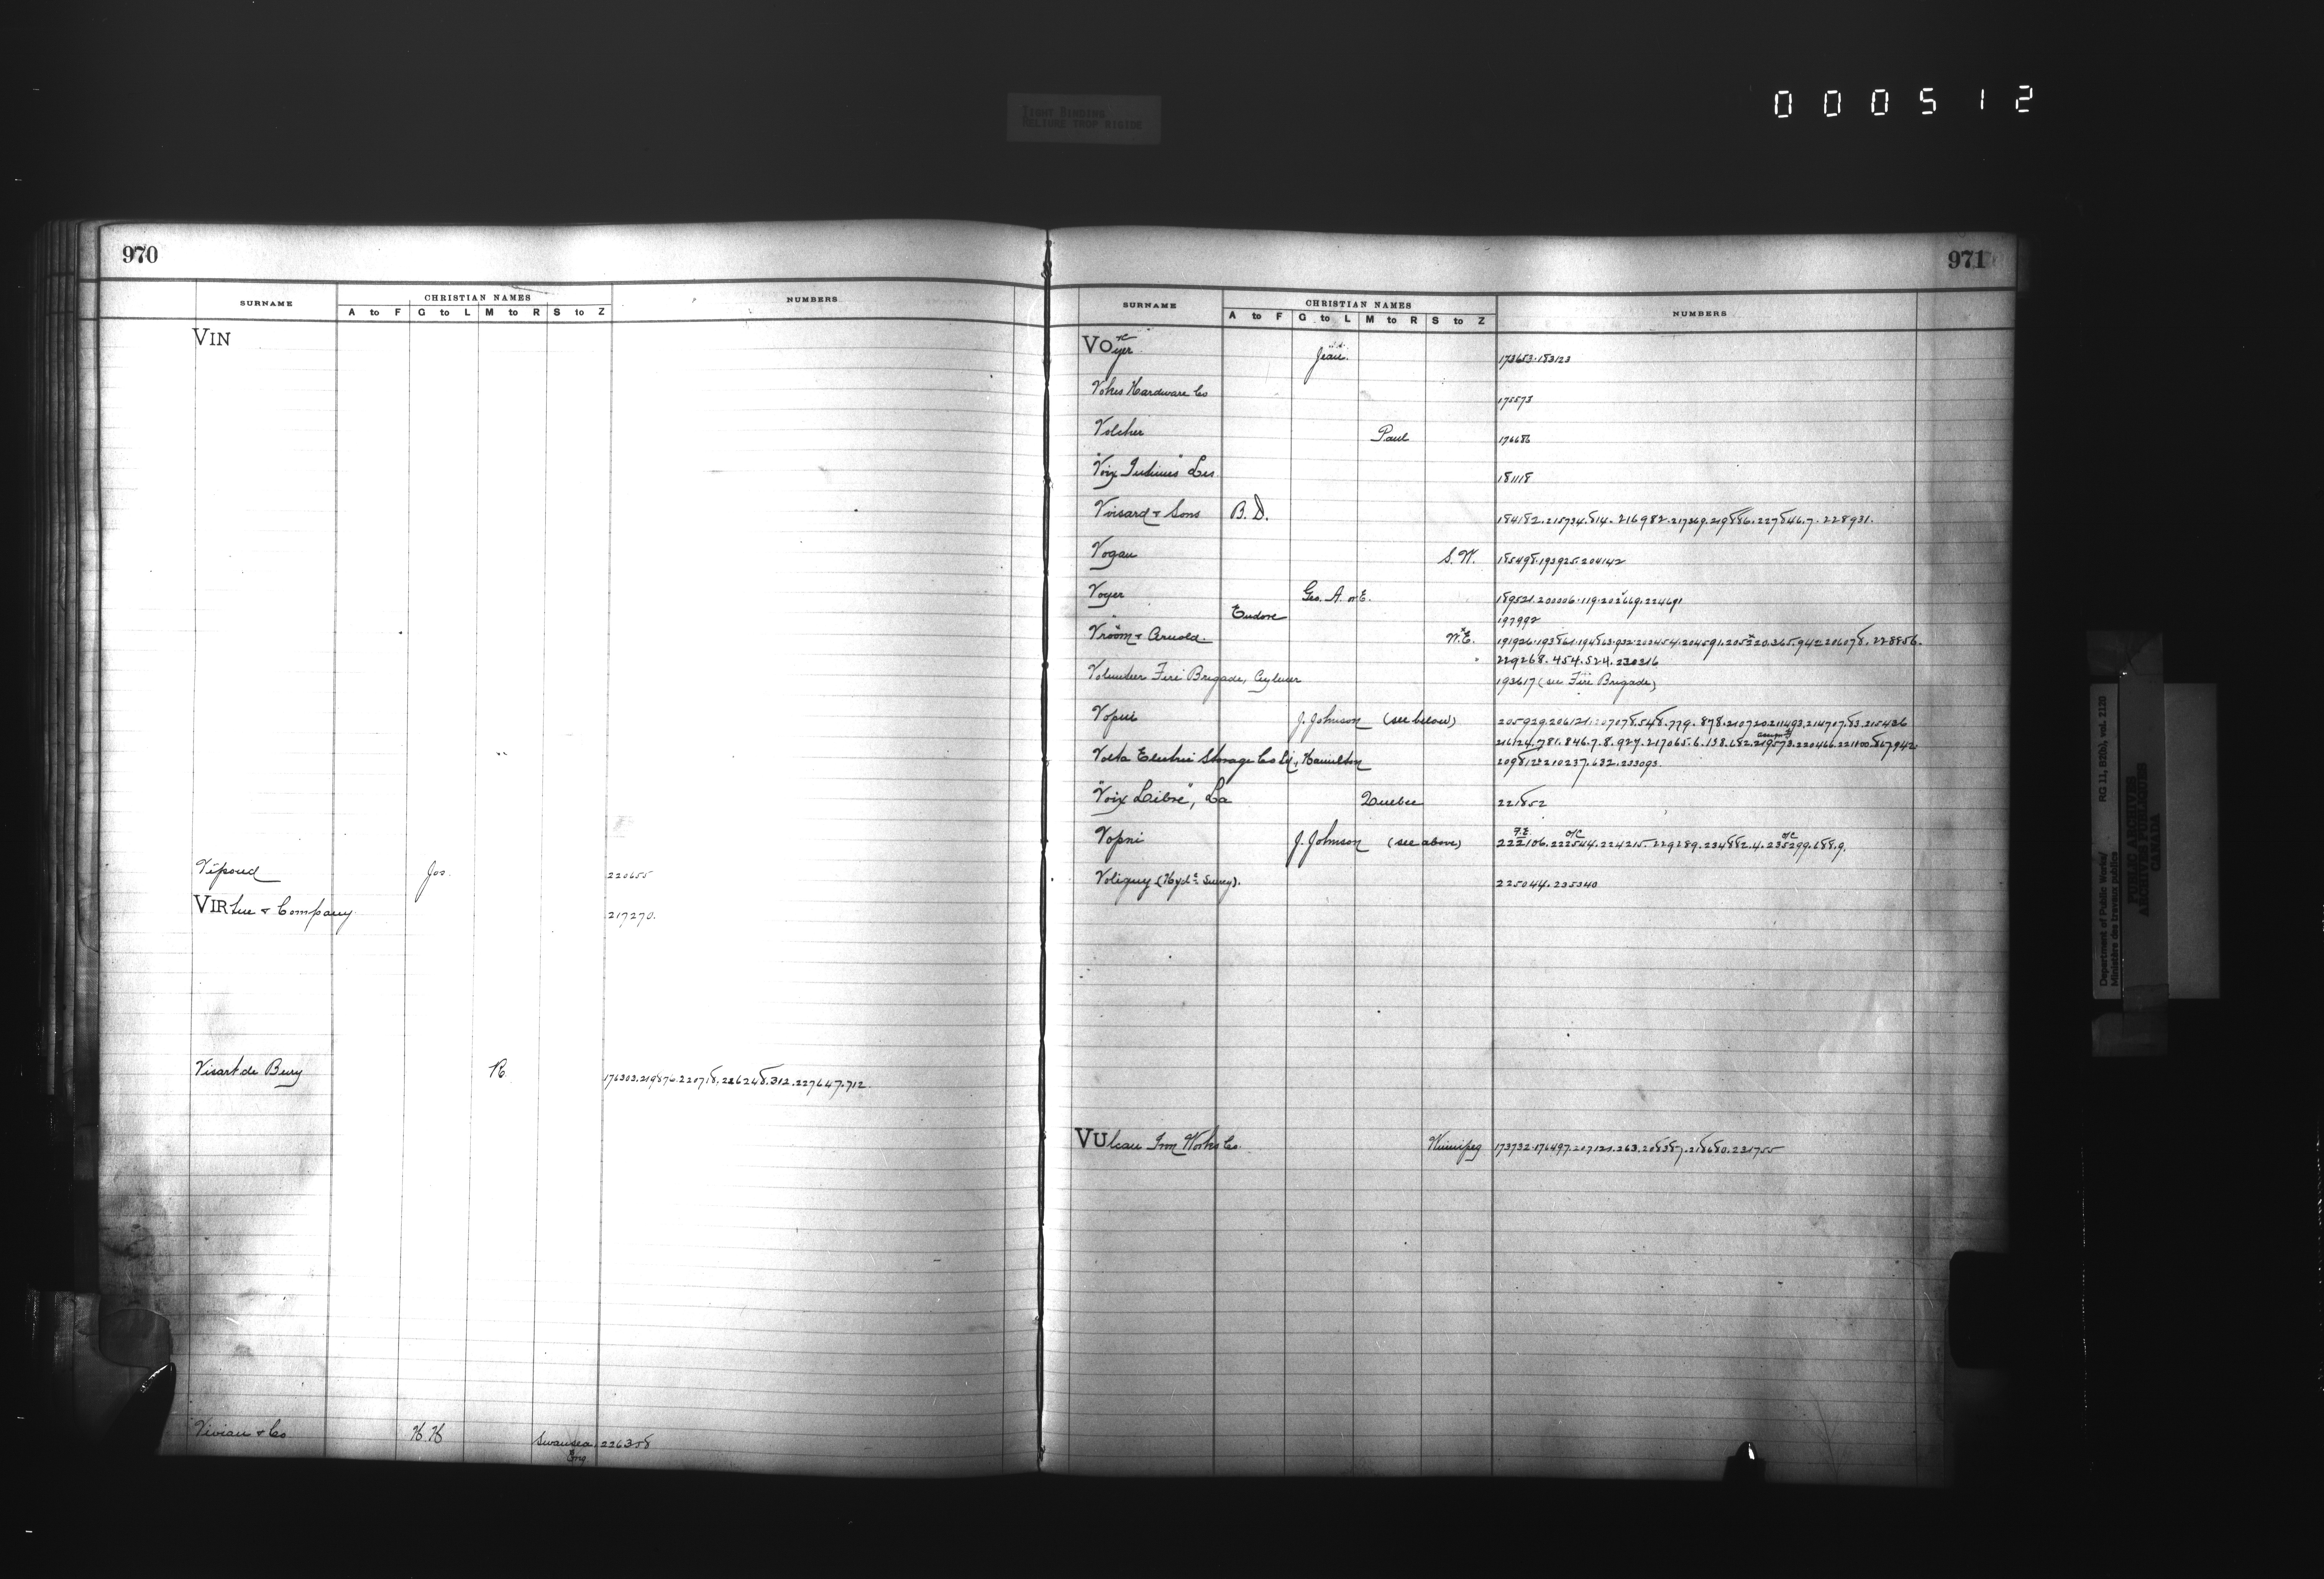 000512
TIGHT BINDING
RELIURE TROP RIGIDE
970
SURNAME CHRISTIAN NAMES NUMBERS
A to F G to L M to R S to Z
VIN
Vipond Jos. 220655
VIRtue & Company 217270.
Visart de Bury R. 176303.219876.220718.226248.312.227647.712.
Vivian & Co H.H. Swansea 226358
Eng.
971
SURNAME CHRISTIAN NAMES NUMBERS
A to F G to L M to R S to Z
VOyer Jean 173653.183123
Vokes Hardware Co 175573
Volcher Paul 176686
"Voix Intimes" Les 181118
Voisard & Sons B.D. 184182.215734.814.216982.217369.219886.227846.7.228931.
Vogan S.W. 185498.193925.204142
Voyer Geo. A. or E. 189521.200006.119.202669.224691
" Eudore 197992
Vroom & Arnold. W.E. 191926.193861.194863.932.200454.204591.205220.365.942.206078.228856.
" 229268.454.524.230316
Volunteer Fire Brigade, Aylmer 193617 (see Fire Brigade)
Vopni J. Johnson (see below) 205929.206121.207078.548.779.878.210720.211493.214707.83.215436
216124.781.846.7.8.927.217065.6.138.682.219573.220466.221100.867.942.
Volta Electric Storage Co Ld., Hamilton 209812.210237.632.233093.
"Voix Libre", La Quebec 221852
Vopni J. Johnson (see above) 222106.222544.224215.229289.234882.4.235299.688.9.
F.E. O/C O/C
Voligny (Hydc Survey). 225044.235340
VUlcan Iron Works Co. Winnipeg 173732.176497.207120.263.208387.218680.231755
Department of Public Works/
Ministère des travaux publics
RG 11, B2(b), vol. 2120
PUBLIC ARCHIVES
ARCHIVES PUBLIQUES
CANADA